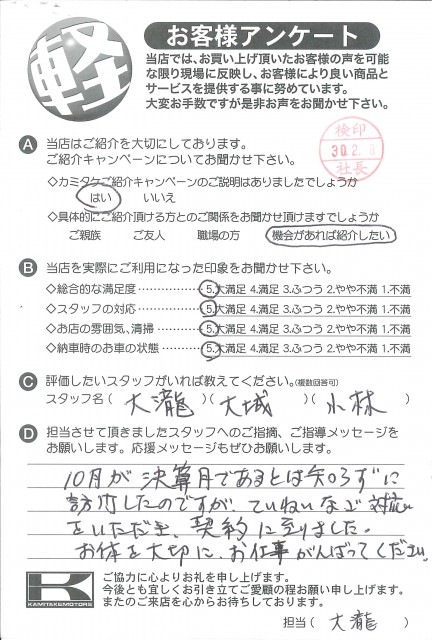 軽
お客様アンケート
当店では、お買い上げ頂いたお客様の声を可能
な限り現場に反映し、お客様により良い商品と
サービスを提供する事に努めています。
大変お手数ですが是非お声をお聞かせ下さい。
A 当店はご紹介を大切にしております。
ご紹介キャンペーンについてお聞かせ下さい。
検印
30.2.8
社長
◇カミタケご紹介キャンペーンのご説明はありましたでしょうか
はい いいえ
◇具体的にご紹介頂ける方とのご関係をお聞かせ頂けますでしょうか
ご親族 ご友人 職場の方 機会があれば紹介したい
B 当店を実際にご利用になった印象をお聞かせ下さい。
◇総合的な満足度……………… 5.大満足 4.満足 3.ふつう 2.やや不満 1.不満
◇スタッフの対応……………… 5.大満足 4.満足 3.ふつう 2.やや不満 1.不満
◇お店の雰囲気、清掃………… 5.大満足 4.満足 3.ふつう 2.やや不満 1.不満
◇納車時のお車の状態………… 5.大満足 4.満足 3.ふつう 2.やや不満 1.不満
C 評価したいスタッフがいれば教えてください。(複数回答可)
スタッフ名( 大瀧 )( 大城 )( 小林 )
D 担当させて頂きましたスタッフへのご指摘、ご指導メッセージを
お願いします。応援メッセージもぜひお願いします。
10月が決算月であるとは知らずに
訪店したのですが、ていねいなご対応
をいただき、契約に至りました。
お体を大切に、お仕事がんばってください。
K
KAMITAKEMOTORS
ご協力に心よりお礼を申し上げます。
今後とも宜しくお引き立てご愛顧の程お願い申し上げます。
またのご来店を心からお待ちしております。
担当( 大瀧 )